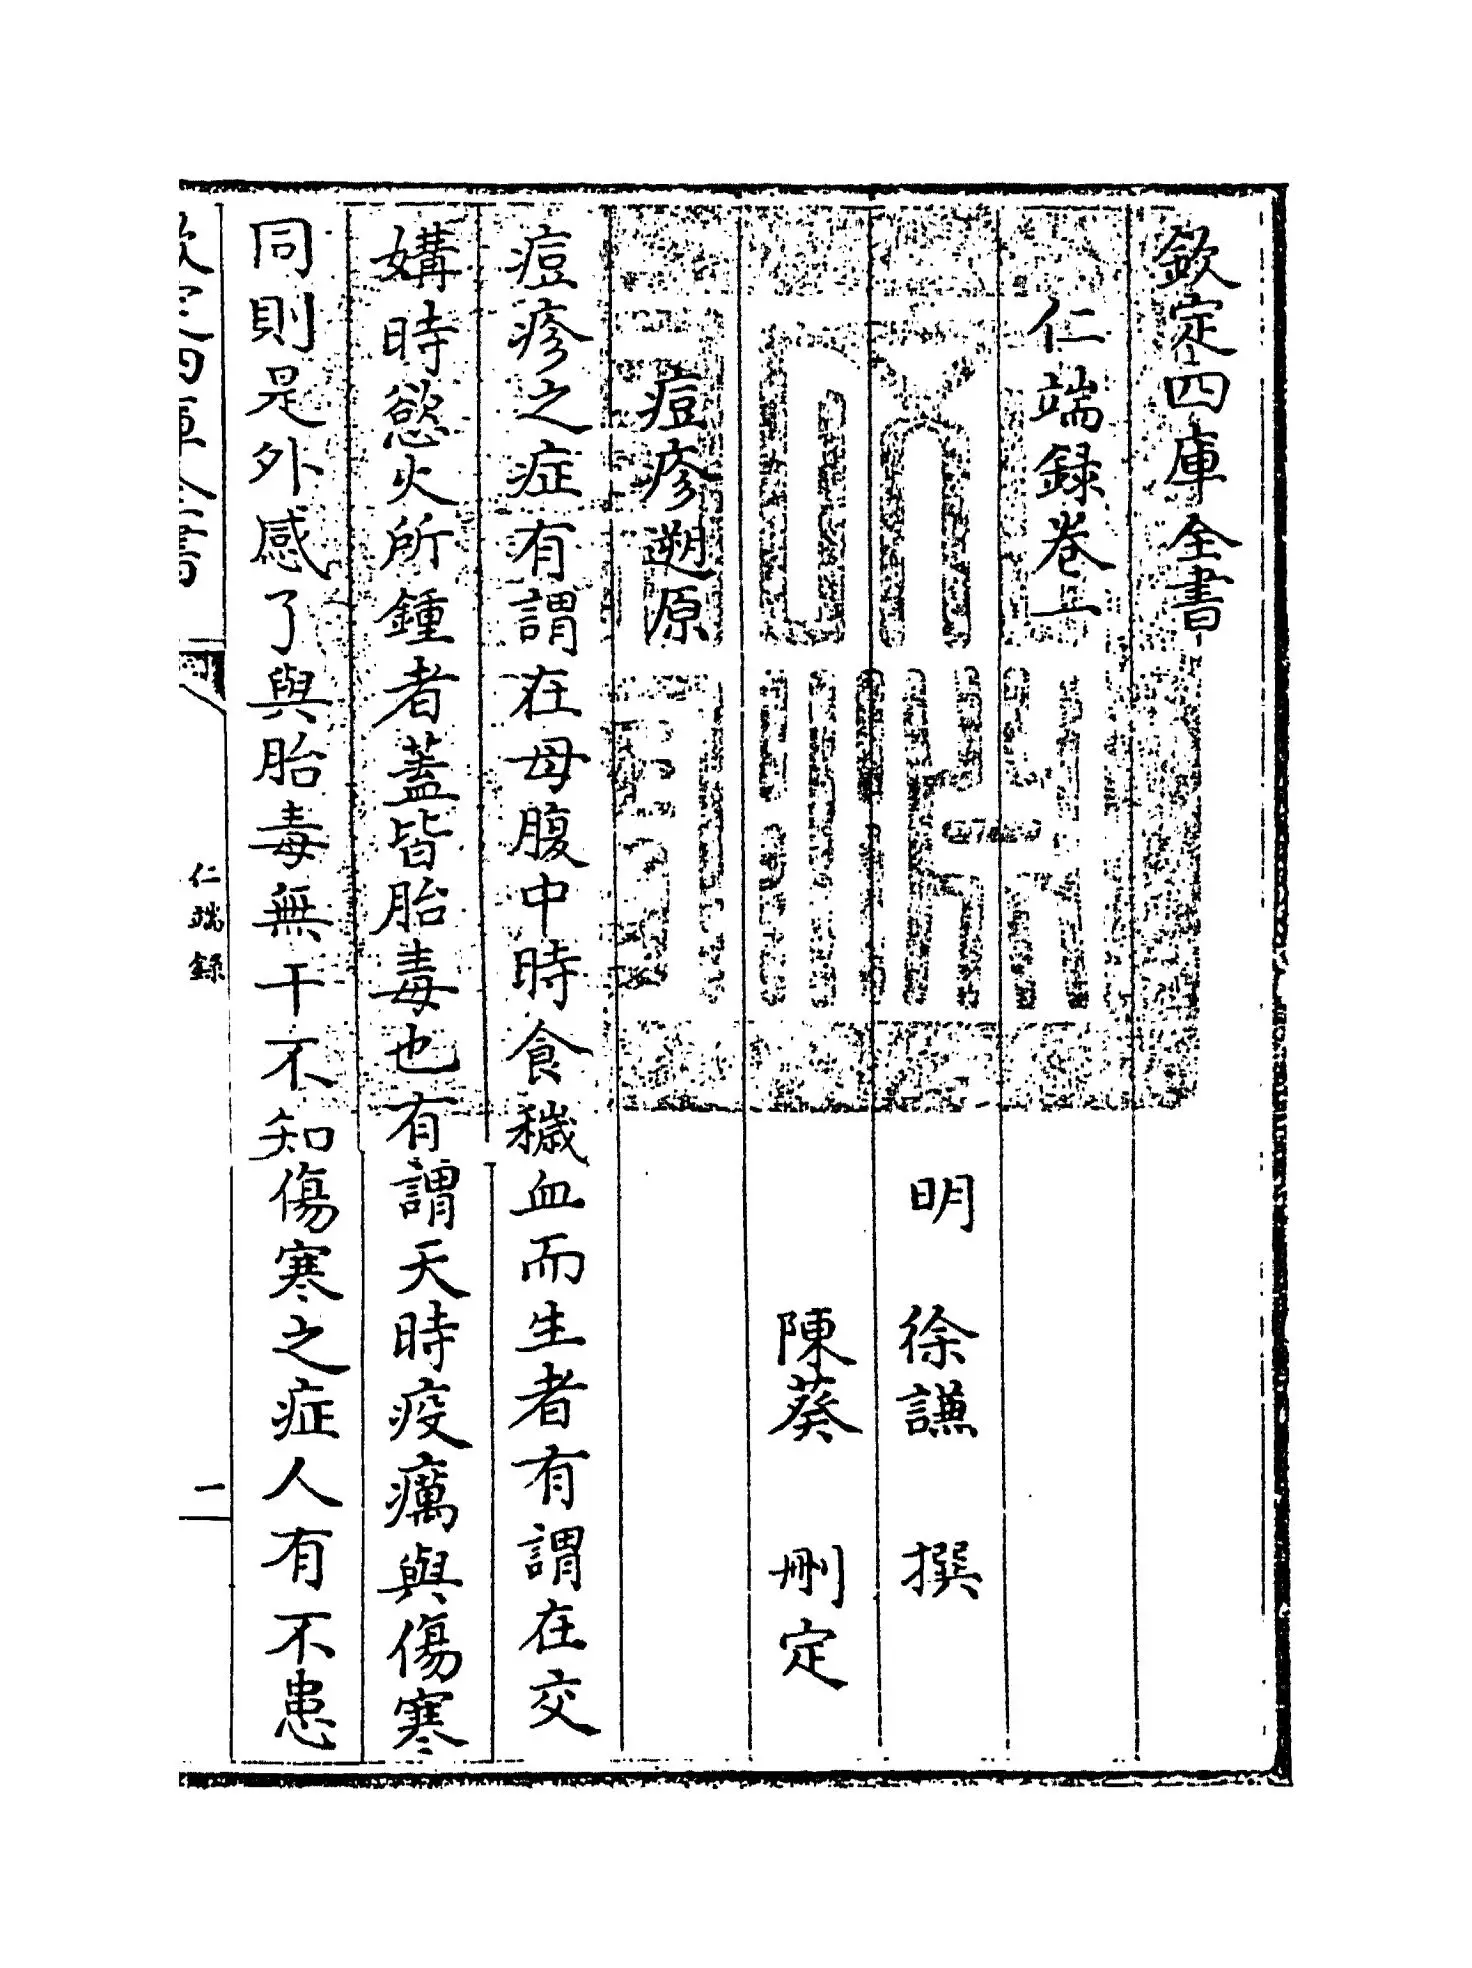 欽定四庫全書
仁端録卷一
明 徐謙 撰
陳葵 刪定
痘疹遡原
痘疹之症有謂在母腹中時食穢血而生者有謂在交
媾時慾火所鍾者蓋皆胎毒也有謂天時疫癘與傷寒
同則是外感了與胎毒無干不知傷寒之症人有不患
欽定四庫全書
仁端録
一